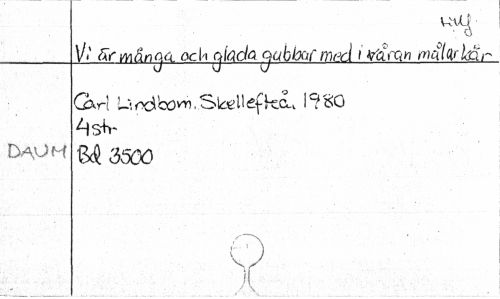 Vi är många och glada gubbar med i våran målarkår
Carl Lindbom. Skellefteå. 1980
4str
DAUM Bd 3500